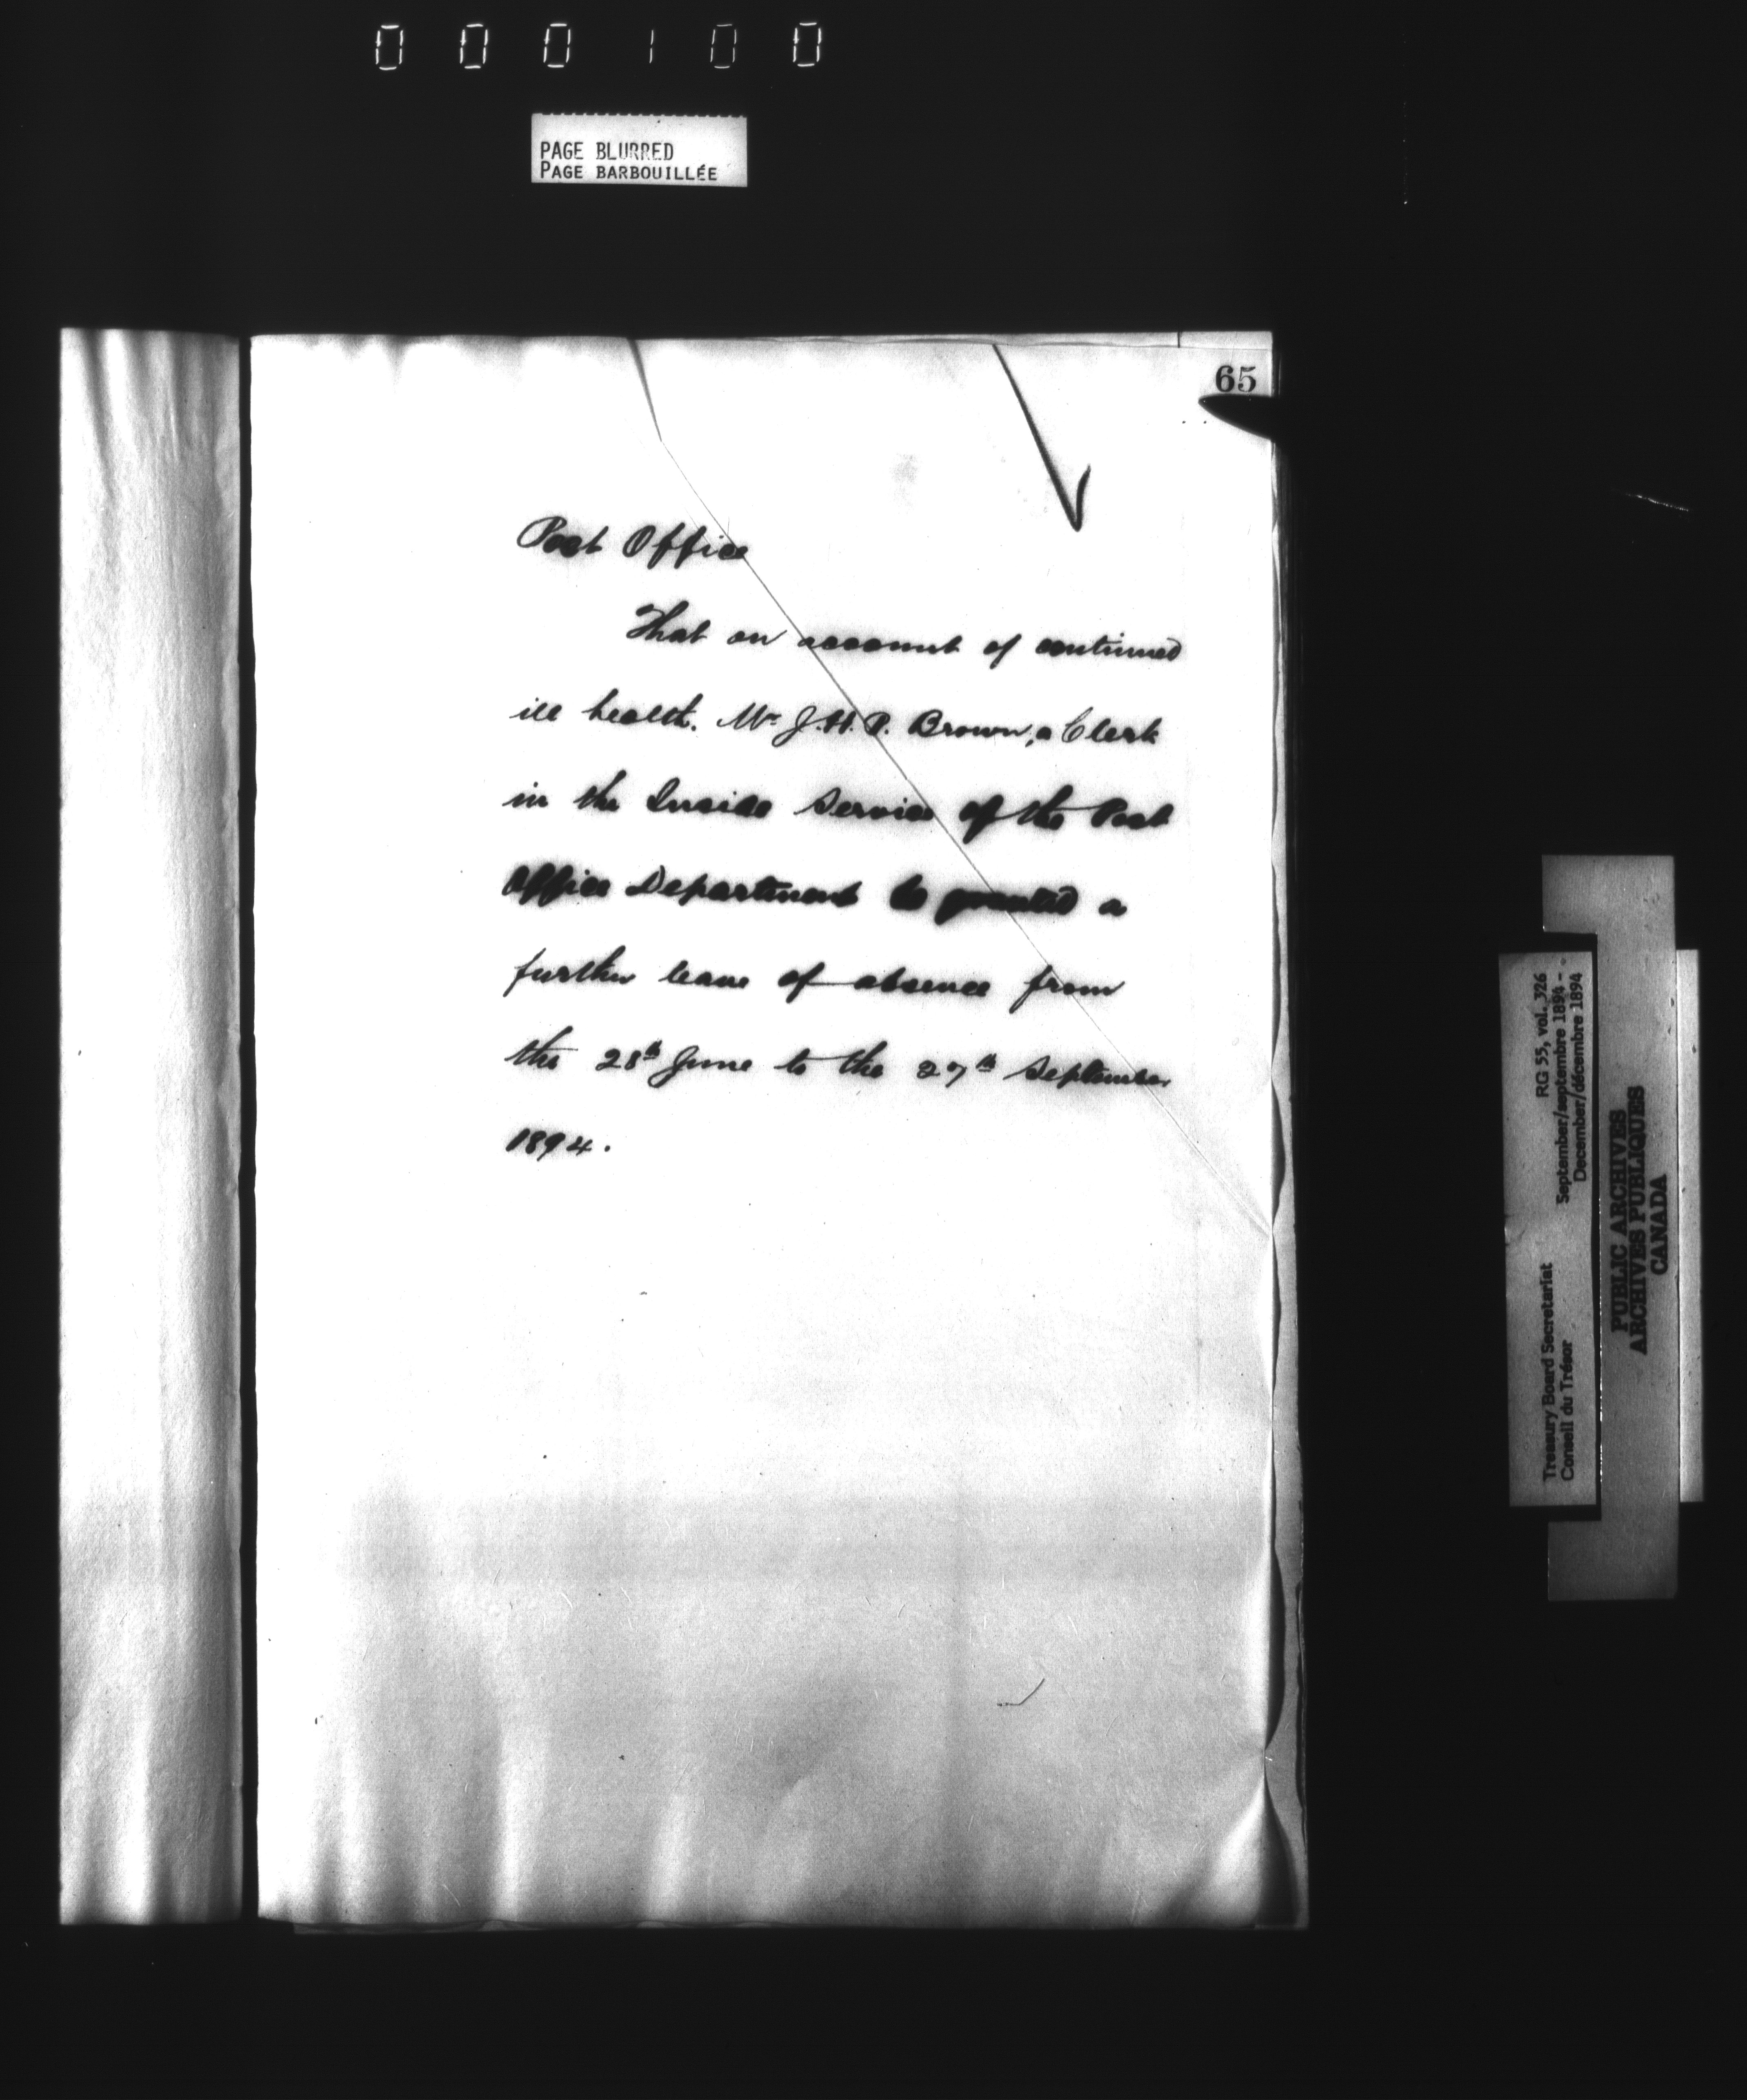 000100
PAGE BLURRED
PAGE BARBOUILLÉE
65
Post Office
That on account of continued
ill health. Mr J. H. P. Brown, a Clerk
in the Inside Service of the Post
Office Department be granted a
further leave of absence from
the 28th June to the 27th September
1894.
Treasury Board Secretariat RG 55, vol. 326
Conseil du Trésor September/septembre 1894 -
December/décembre 1894
PUBLIC ARCHIVES
ARCHIVES PUBLIQUES
CANADA